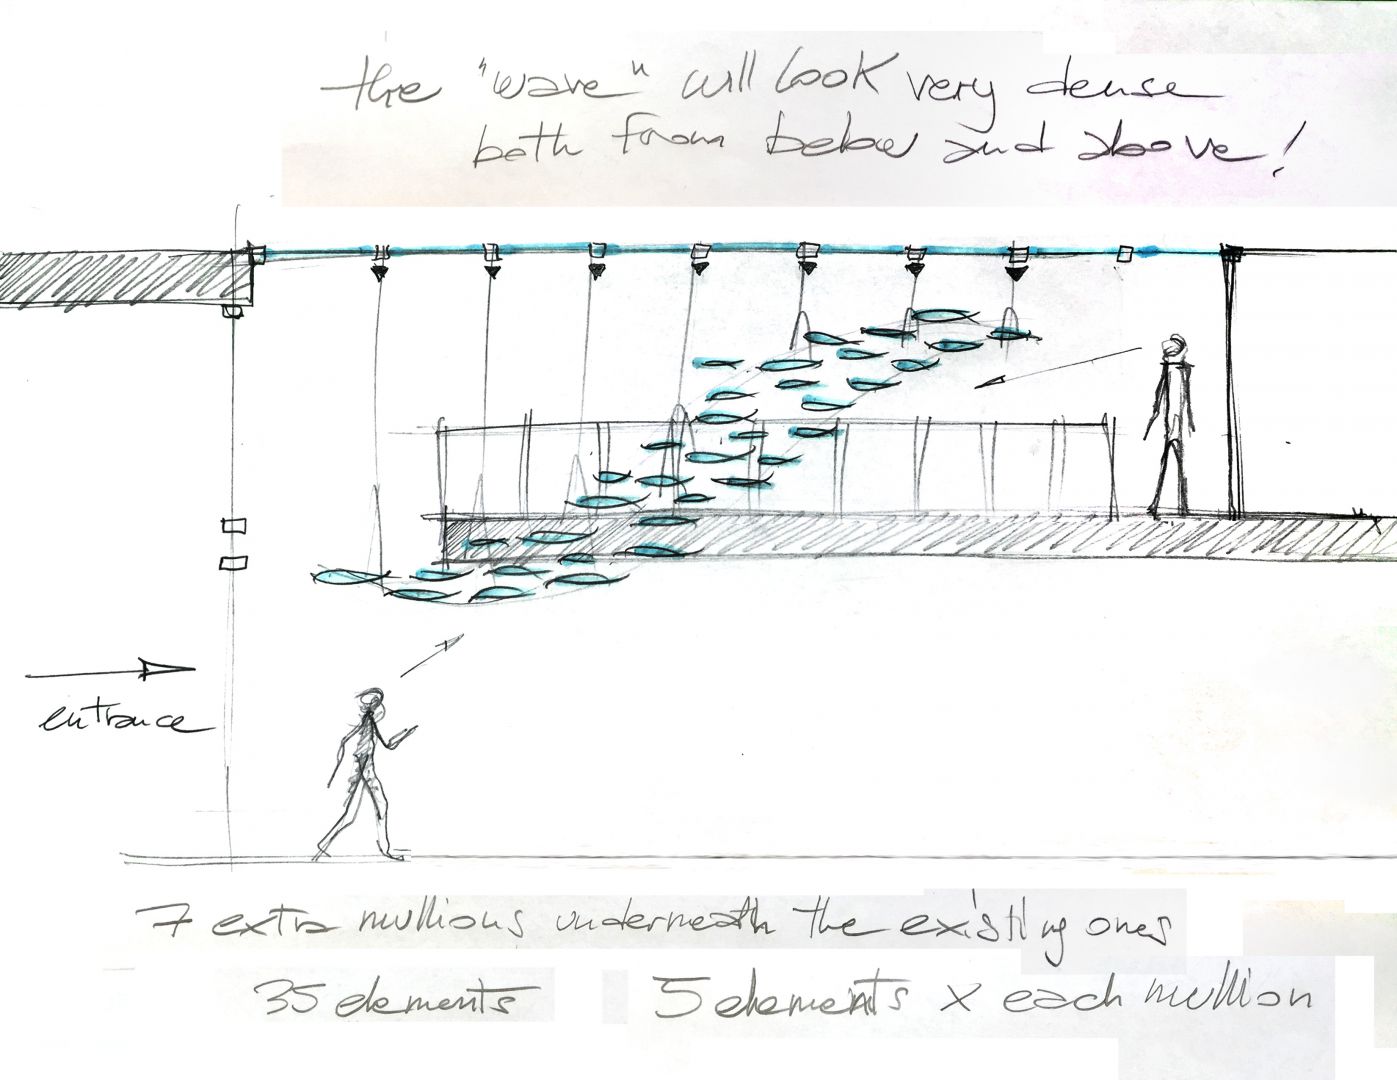 the "wave" will look very dense
both from below and above!
entrance
7 extra mullions underneath the existing ones
35 elements 5 elements x each mullion